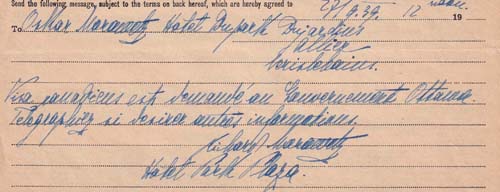 Send the following message, subject to the terms on back hereof, which are hereby agreed to
27/9.39. 12 19
To Oskar Morawetz Hotel Dujardins
Visa canadiens est demandé au Gouvernement Ottawa.
Telegraphiez si desirez autres informations.
Richard Morawetz
Hotel Park Plaza.